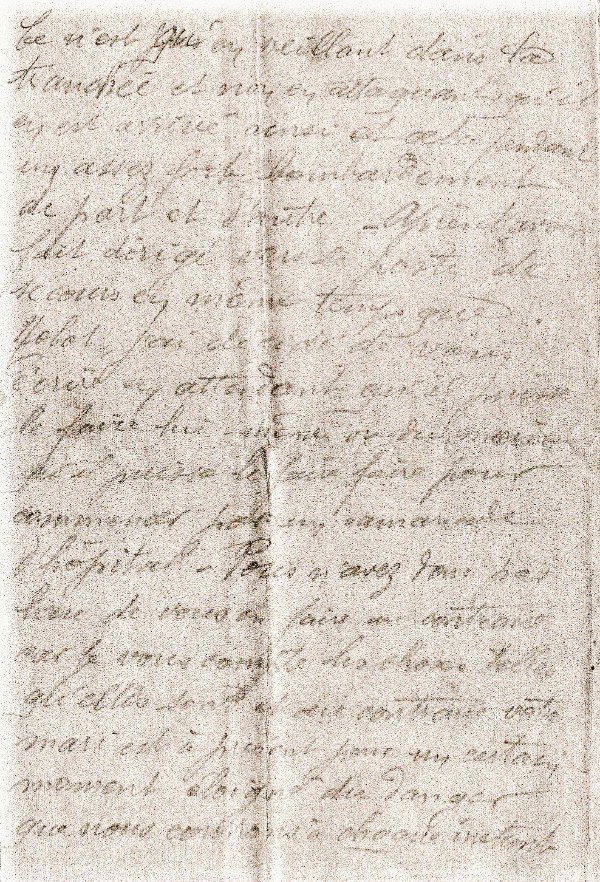 Ce n'est qu'en veillant dans la
tranchée et non en attaquant qu'il
en est arrivé ainsi et cela pendant
un assez fort bombardement
de part et d'autre. Après l'avoir
dirigé vers le poste de
secours en même temps que
j'ai décidé de vous
écrire en attendant qu'il puisse
le faire lui même ou du moins
qu'il puisse le faire faire pour
commencer par un camarade
d'hôpital. Vous n'avez donc pas
lieu de vous en faire au contraire
car je vous compte les choses telles
qu'elles sont et au contraire votre
mari est à présent pour un certain
moment éloigné du danger
que nous courrons à chaque instant